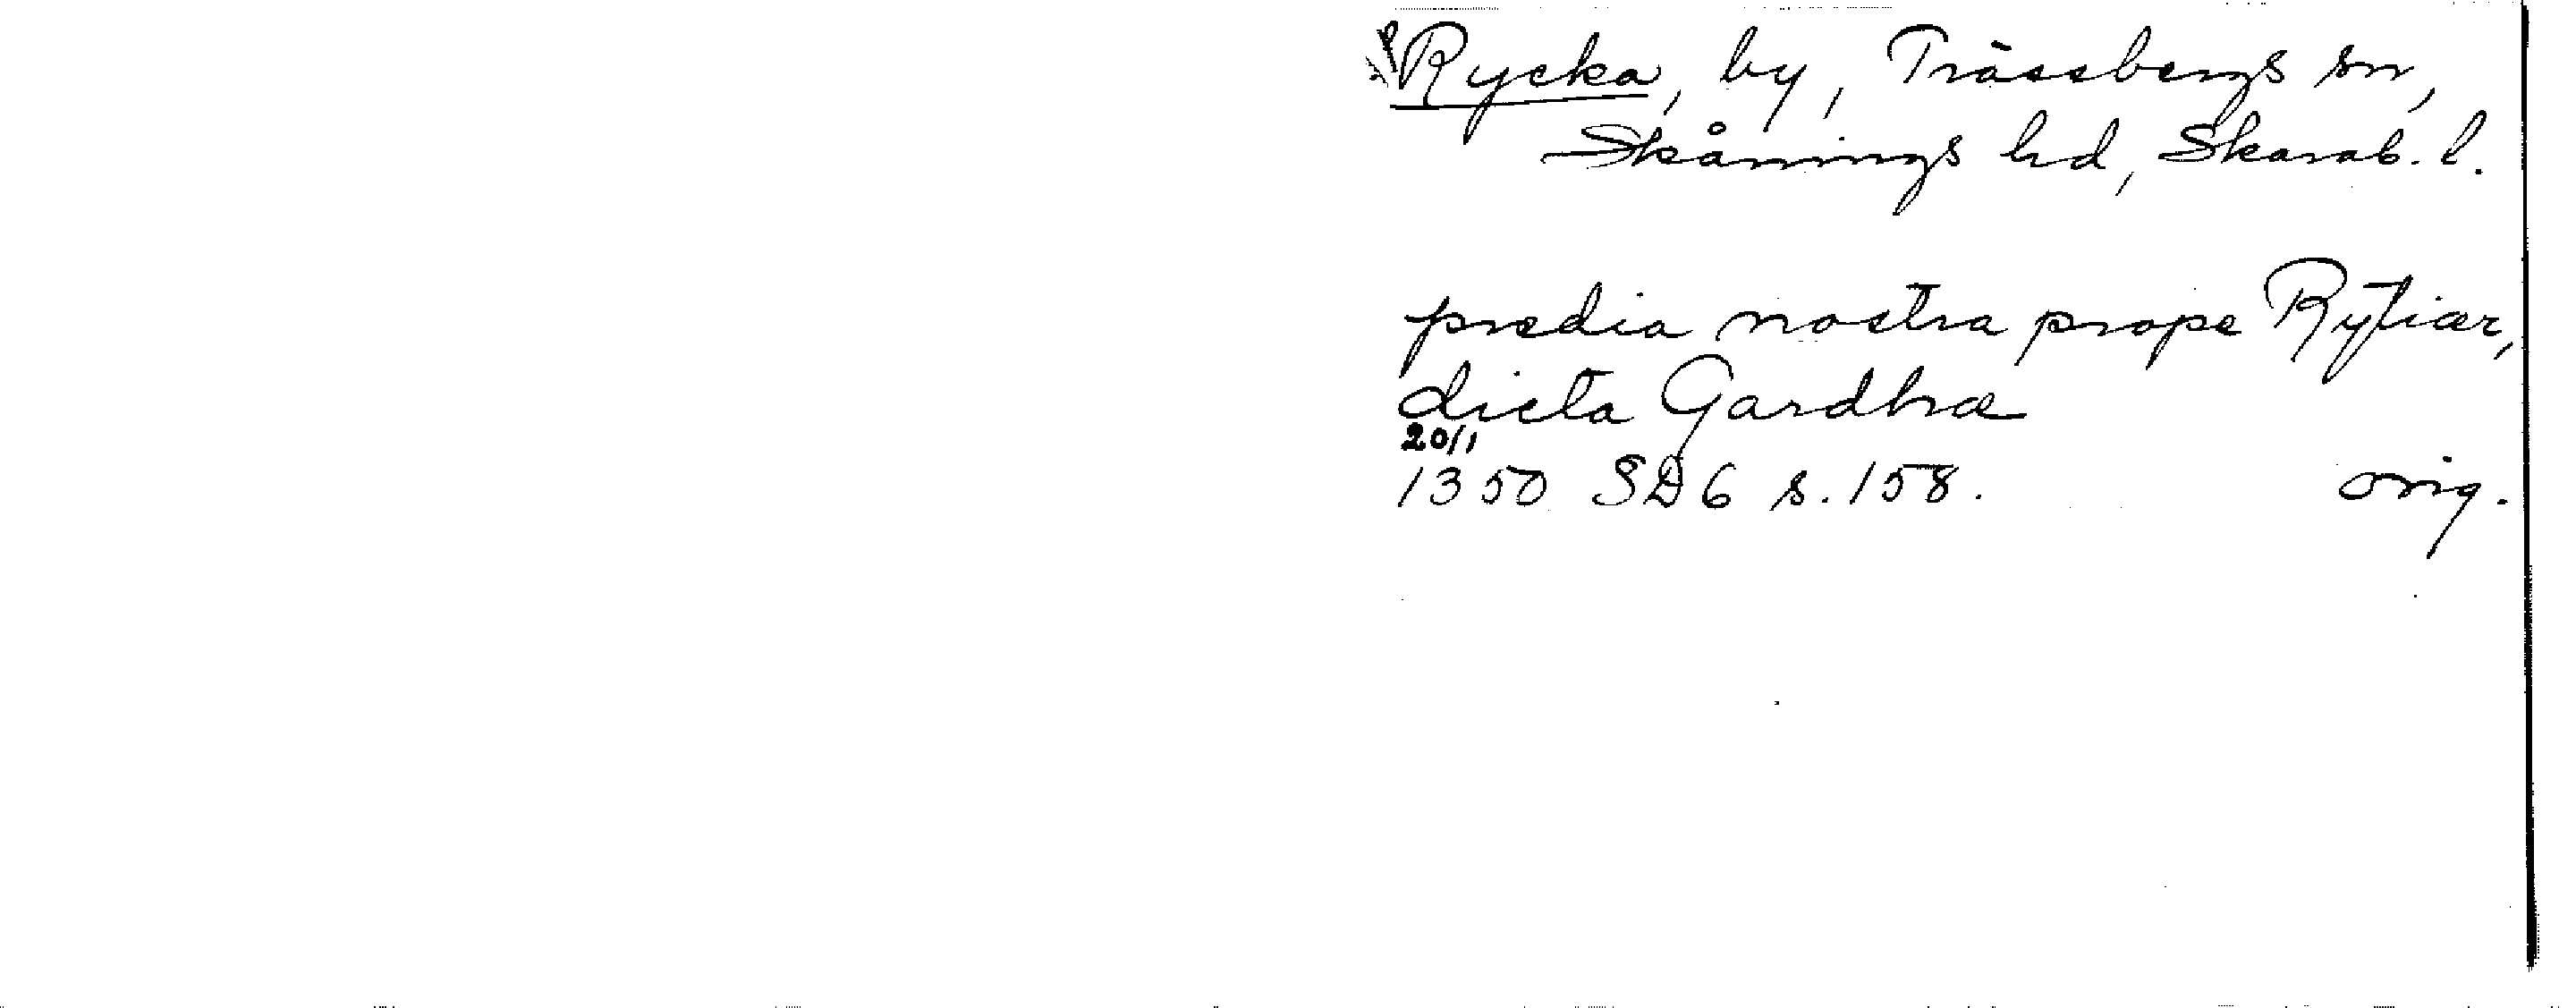 Rycka, by, Trässbergs sn,
Skånings hd, Skarab. l.
predia nostra prope Rytiær,
dicta Gardhræ
20/1
1350 SD 6 s. 158. orig.